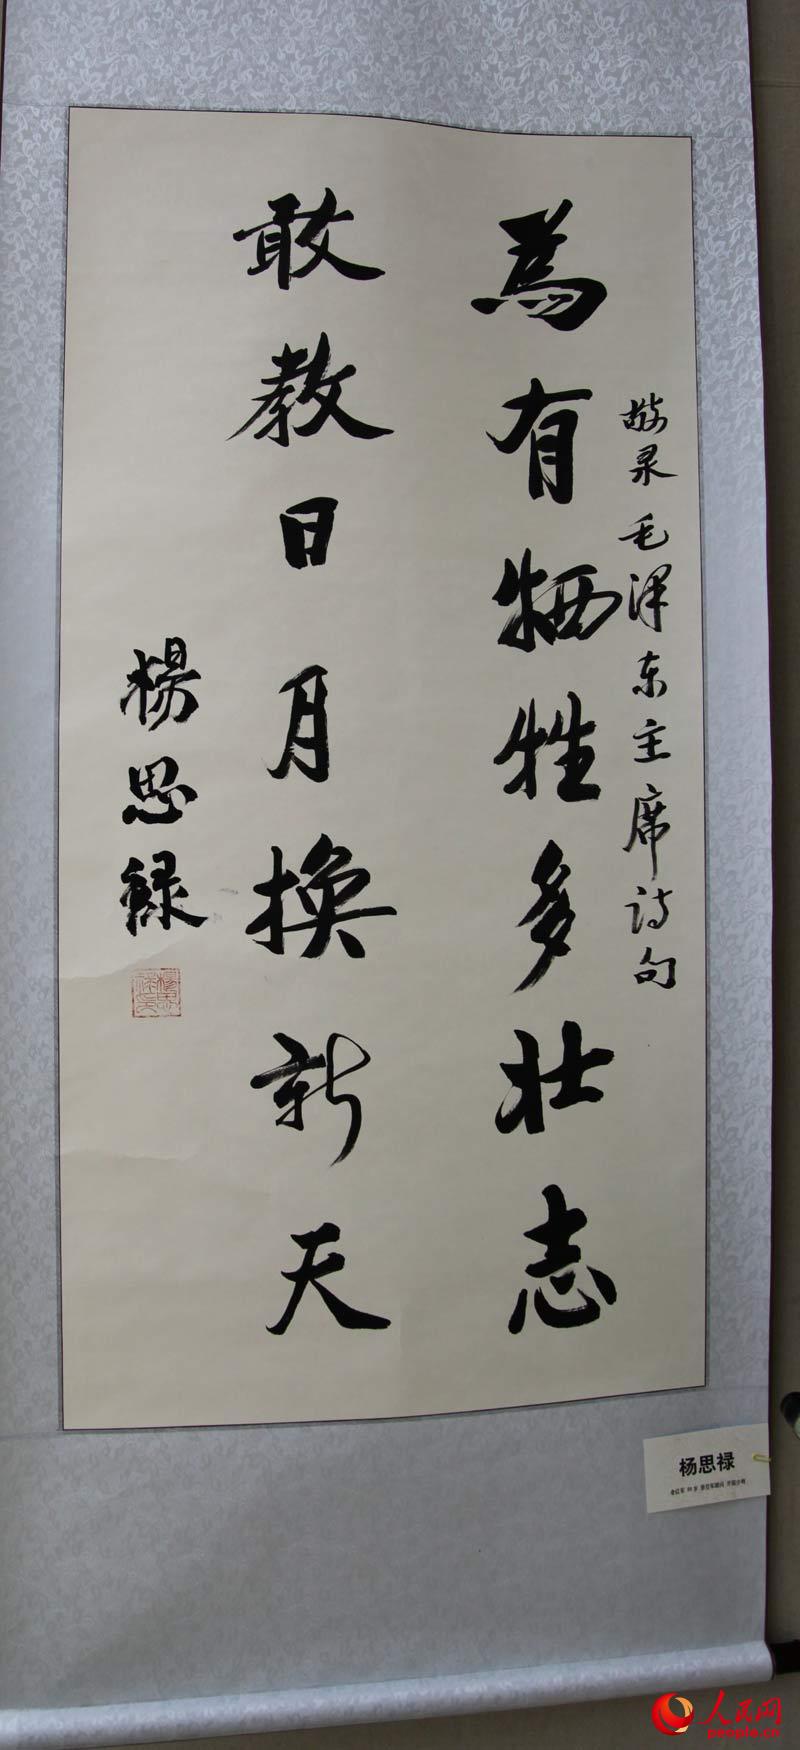 敬录毛泽东主席诗句
為有牺牲多壮志
敢教日月换新天
楊思禄
杨思禄
人民网
people.cn